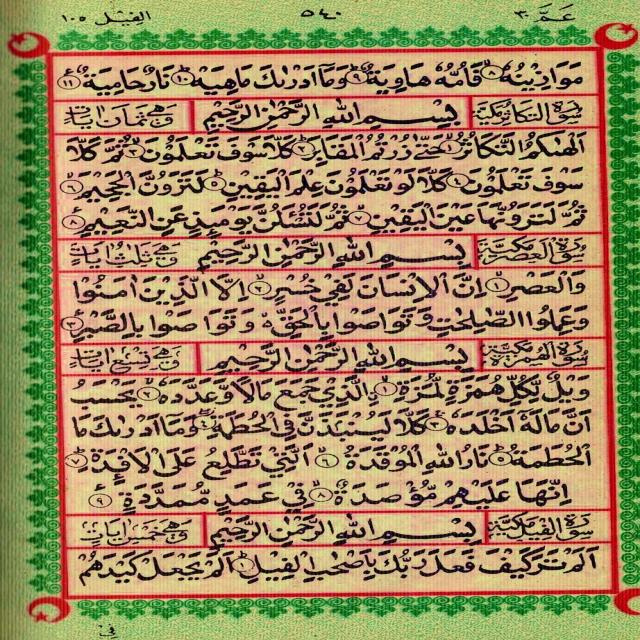 عَمَّ ٣٠ ٥٤٠ الفِيل ١٠٥
مَوَازِينُهُ ﴿٨﴾ فَأُمُّهُ هَاوِيَةٌ ﴿٩﴾ وَمَا أَدْرٰىكَ مَاهِيَهْ ﴿١٠﴾ نَارٌ حَامِيَةٌ ﴿١١﴾
سُورَةُ التَّكَاثُرِ مَكِّيَّة بِسْمِ اللهِ الرَّحْمٰنِ الرَّحِيمِ وَهِيَ ثَمَانُ اٰيَات
اَلْهٰىكُمُ التَّكَاثُرُ ﴿١﴾ حَتّٰى زُرْتُمُ الْمَقَابِرَ ﴿٢﴾ كَلَّا سَوْفَ تَعْلَمُونَ ﴿٣﴾ ثُمَّ كَلَّا
سَوْفَ تَعْلَمُونَ ﴿٤﴾ كَلَّا لَوْ تَعْلَمُونَ عِلْمَ الْيَقِينِ ﴿٥﴾ لَتَرَوُنَّ الْجَحِيمَ ﴿٦﴾
ثُمَّ لَتَرَوُنَّهَا عَيْنَ الْيَقِينِ ﴿٧﴾ ثُمَّ لَتُسْئَلُنَّ يَوْمَئِذٍ عَنِ النَّعِيمِ ﴿٨﴾
سُورَةُ الْعَصْرِ مَكِّيَّة بِسْمِ اللهِ الرَّحْمٰنِ الرَّحِيمِ وَهِيَ ثَلٰثُ اٰيَات
وَالْعَصْرِ ﴿١﴾ اِنَّ الْاِنْسَانَ لَفِي خُسْرٍ ﴿٢﴾ اِلَّا الَّذِينَ اٰمَنُوا
وَعَمِلُوا الصّٰلِحٰتِ وَتَوَاصَوْا بِالْحَقِّ وَتَوَاصَوْا بِالصَّبْرِ ﴿٣﴾
سُورَةُ الْهُمَزَةِ مَكِّيَّة بِسْمِ اللهِ الرَّحْمٰنِ الرَّحِيمِ وَهِيَ تِسْعُ اٰيَات
وَيْلٌ لِكُلِّ هُمَزَةٍ لُمَزَةٍ ﴿١﴾ اَلَّذِي جَمَعَ مَالًا وَعَدَّدَهُ ﴿٢﴾ يَحْسَبُ
اَنَّ مَالَهُ اَخْلَدَهُ ﴿٣﴾ كَلَّا لَيُنْبَذَنَّ فِي الْحُطَمَةِ ﴿٤﴾ وَمَا اَدْرٰىكَ مَا
الْحُطَمَةُ ﴿٥﴾ نَارُ اللهِ الْمُوقَدَةُ ﴿٦﴾ اَلَّتِي تَطَّلِعُ عَلَى الْاَفْـِٔدَةِ ﴿٧﴾
اِنَّهَا عَلَيْهِمْ مُؤْصَدَةٌ ﴿٨﴾ فِي عَمَدٍ مُمَدَّدَةٍ ﴿٩﴾
سُورَةُ الْفِيلِ مَكِّيَّة بِسْمِ اللهِ الرَّحْمٰنِ الرَّحِيمِ وَهِيَ خَمْسُ اٰيَات
اَلَمْ تَرَ كَيْفَ فَعَلَ رَبُّكَ بِاَصْحٰبِ الْفِيلِ ﴿١﴾ اَلَمْ يَجْعَلْ كَيْدَهُمْ
فِي